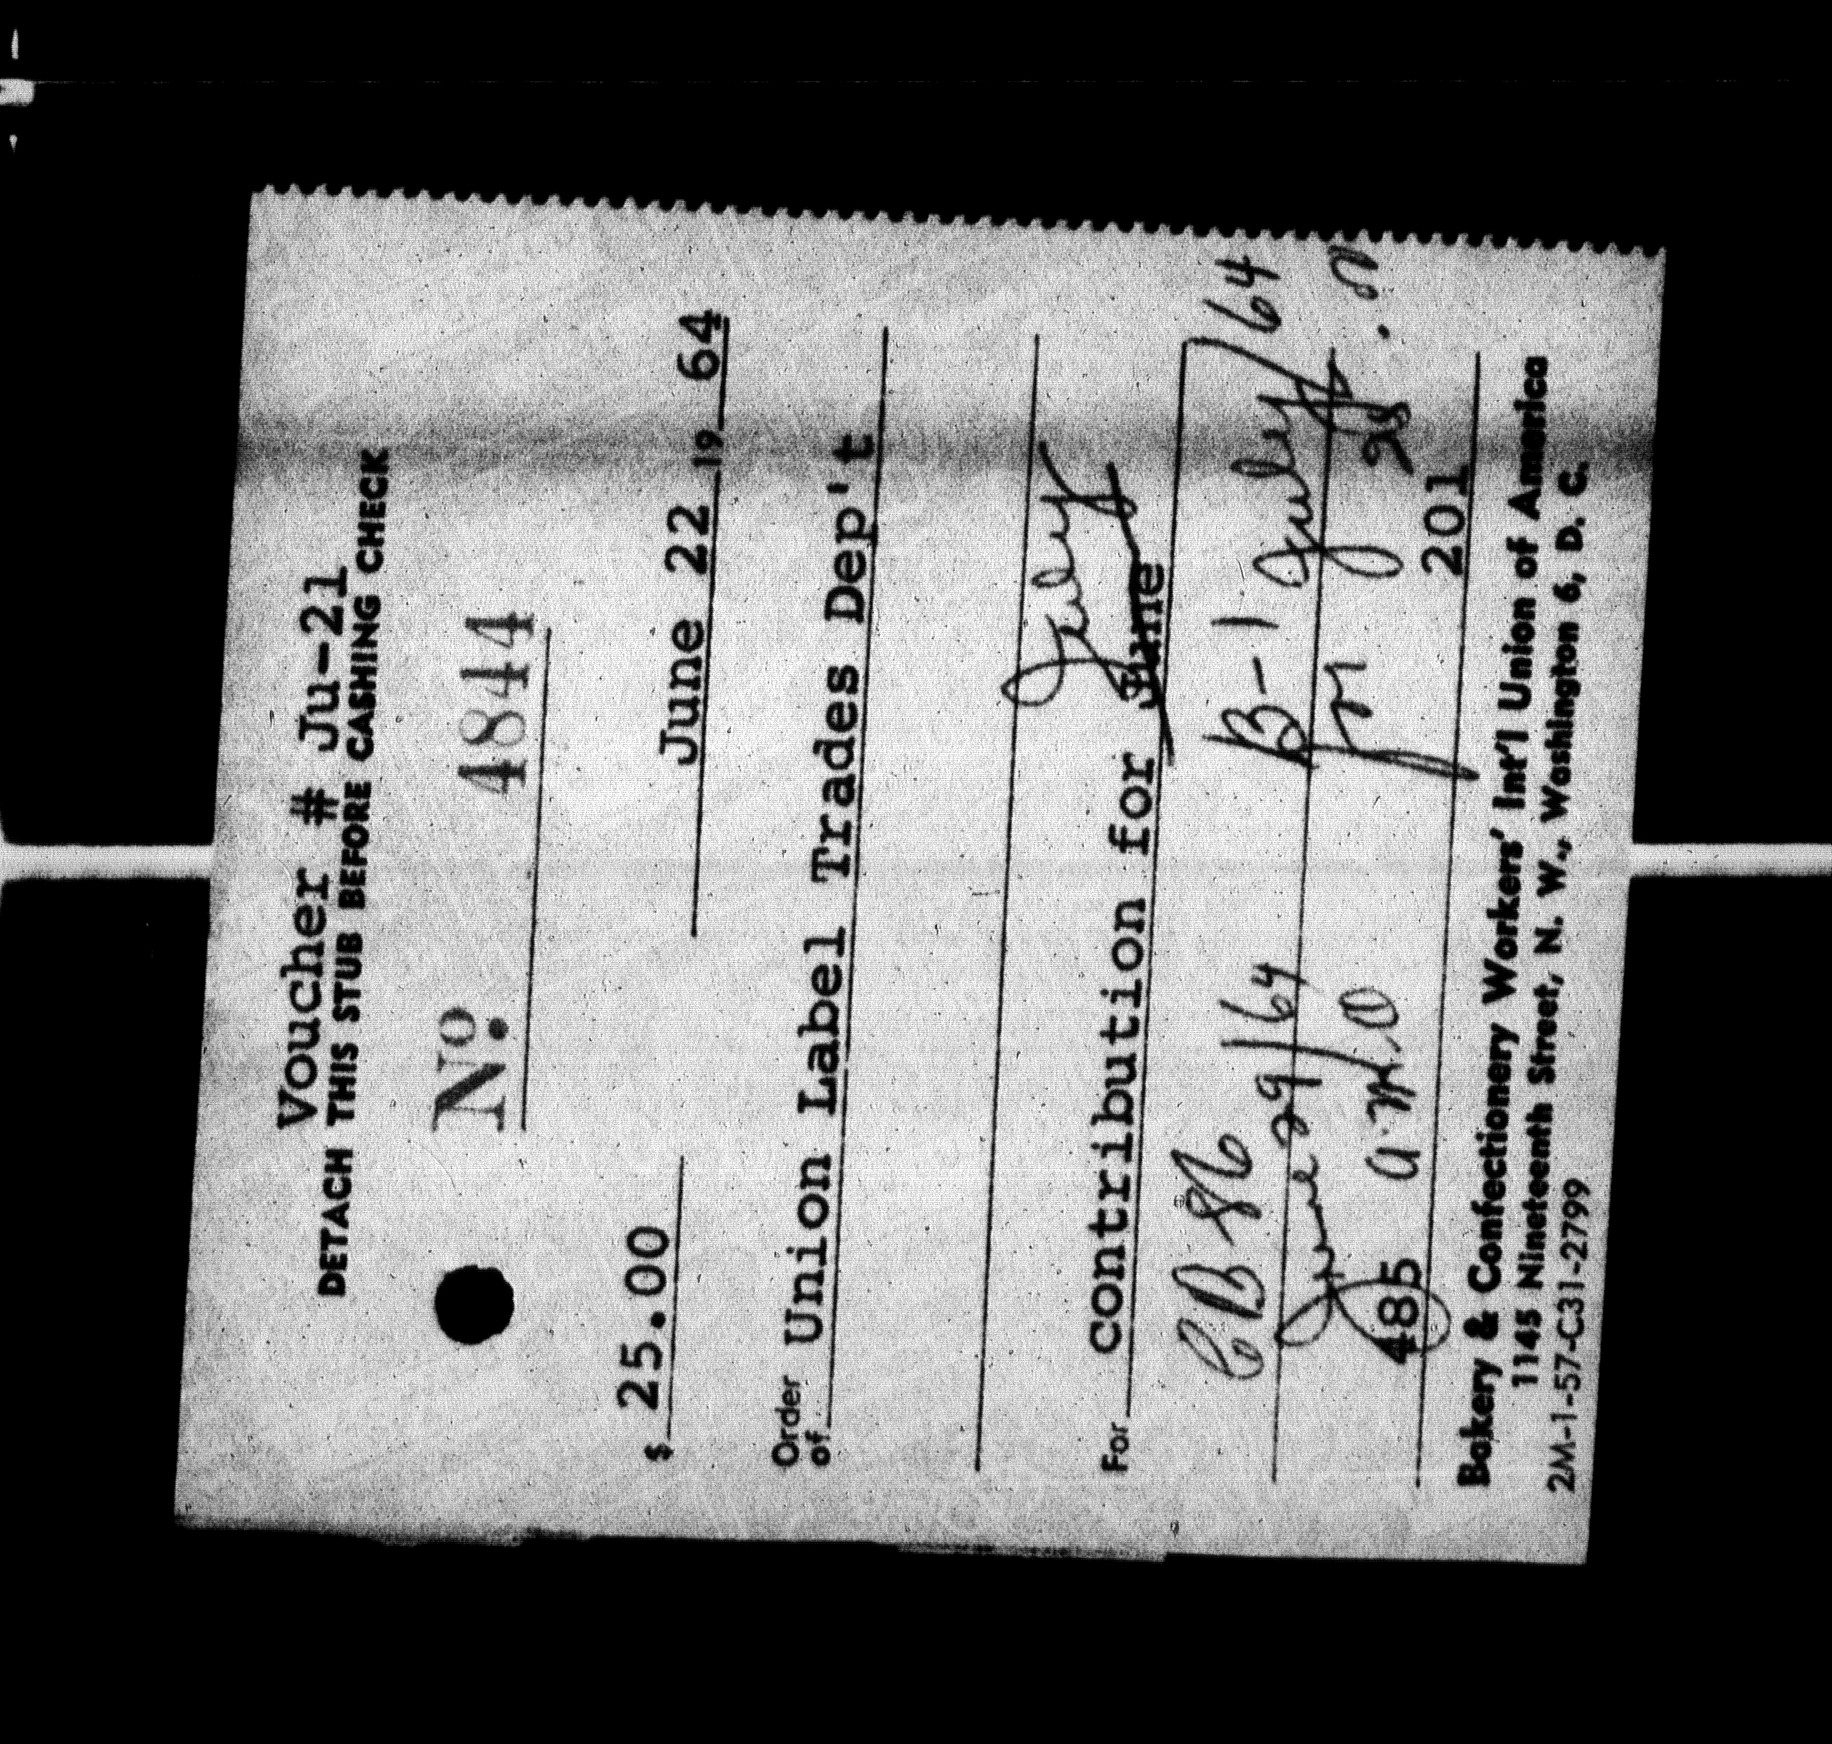 Voucher # Ju-21
DETACH THIS STUB BEFORE CASHING CHECK
No. 4844
$ 25.00 June 22 19 64
Order
of Union Label Trades Dep't
July
For contribution for June
CB 86 B-1 July/64
June 29/64
485 201
Bakery & Confectionery Workers' Int'l Union of America
1145 Nineteenth Street, N. W., Washington 6, D. C.
2M-1-57-C31-2799